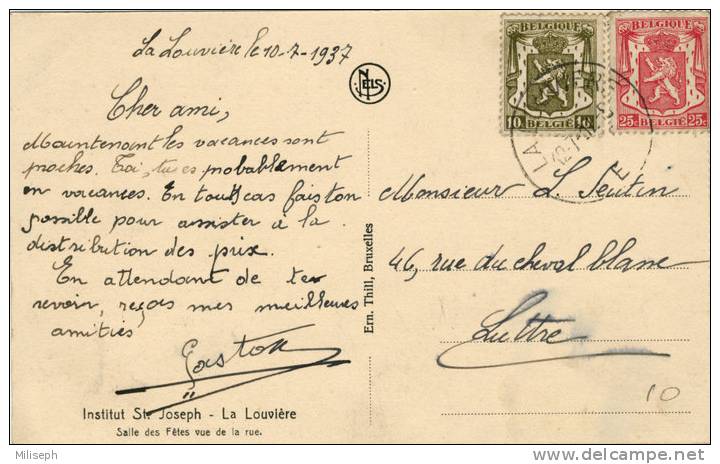 La Louvière le 10-7-1937
NELS
Cher ami,
Maintenant les vacances sont
proches. Toi, tu es probablement
en vacances. En tout cas fais ton
possible pour assister à la
distribution des prix.
En attendant de te
revoir, reçois mes meilleures
amitiés
Gaston
Institut St. Joseph - La Louvière
Salle des Fêtes vue de la rue.
Ern. Thill, Bruxelles
BELGIQUE
10 10
BELGIË
BELGIQUE
25c BELGIË 25c
Monsieur L. Seutin
46, rue du cheval blanc
Luttre
10
Miliseph
delcampe.net